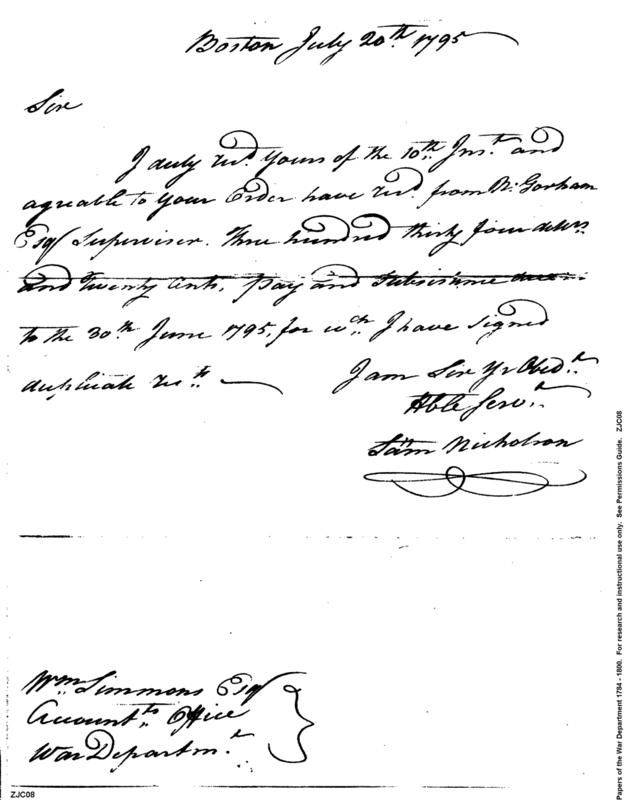 Boston July 20th 1795
Sir
I duly recd. Yours of the 10th. Inst. and
agreable to Your Order have recd. from N: Gorham
Esqr Superviser. three hundred thirty four dollrs
and twenty Cents, pay and Subsistence due
to the 30th June 1795, for wch. I have signed
duplicate rects.
I am Sir Yr Obedt.
Hble Servt.
Sam Nicholson
Wm. Simmons Esqr
Accountts. Office
War Departmt.
ZJC08
Papers of the War Department 1784 - 1800. For research and instructional use only. See Permissions Guide. ZJC08